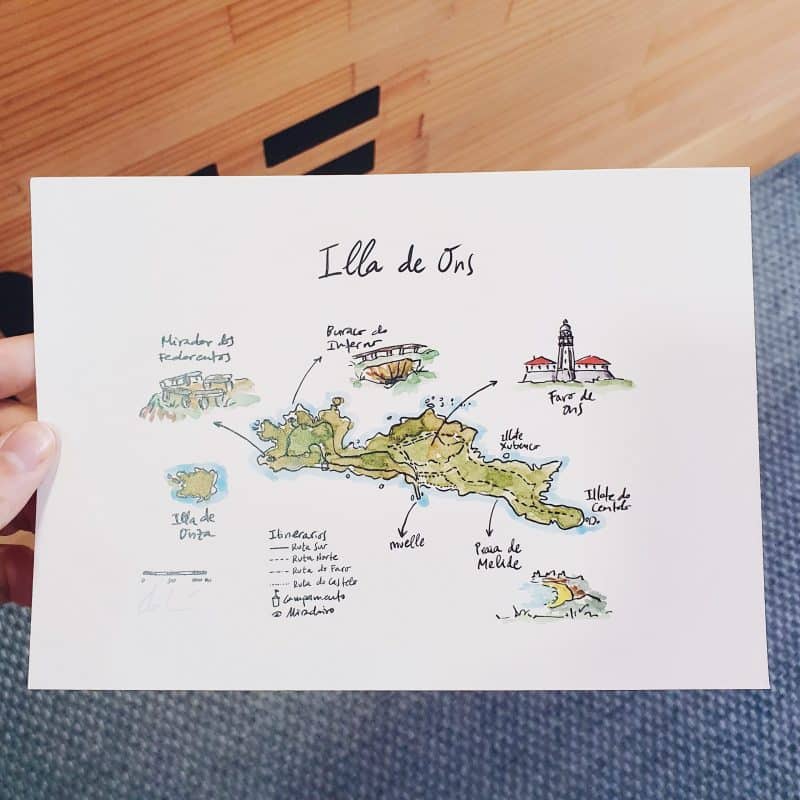 Illa de Ons
Mirador dos
Fedorentos
Buraco do
Inferno
Faro de
Ons
Illote
Illote do
Centolo
Illa de
Onza
Itinerarios
Ruta Sur
Ruta Norte
Ruta do Faro
Ruta do Castelo
Campamento
Miradoiro
muelle
Praia de
Melide
0